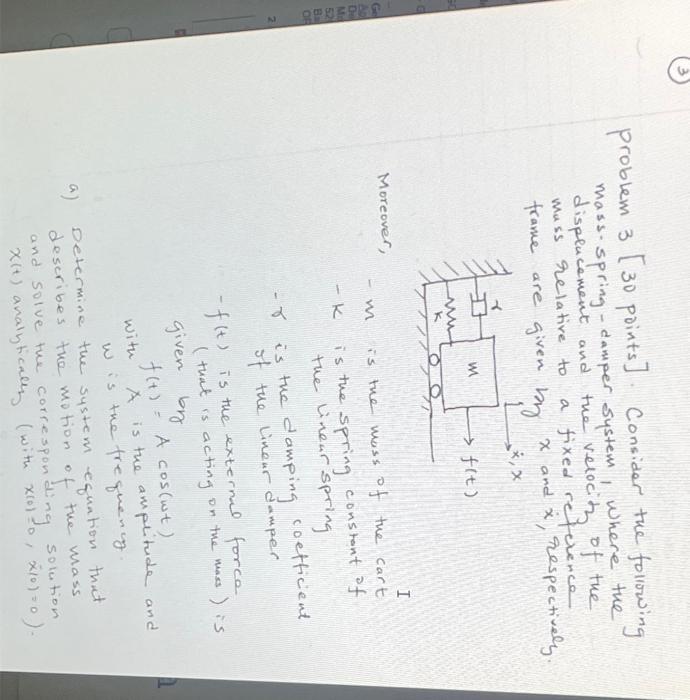 3
Problem 3 [30 points]. Consider the following
mass-spring-damper system, where the
displacement and the velocity of the
mass relative to a fixed reference
frame are given by x and ẋ, respectively.
ẋ, x
γ
m
f(t)
k
Moreover, - m is the mass of the cart
- k is the spring constant of
the linear spring
- γ is the damping coefficient
of the linear damper
- f(t) is the external force
(that is acting on the mass) is
given by
f(t) = A cos(ωt)
with A is the amplitude and
ω is the frequency.
a) Determine the system equation that
describes the motion of the mass
and solve the corresponding solution
x(t) analytically (with x(0)=0, ẋ(0)=0).